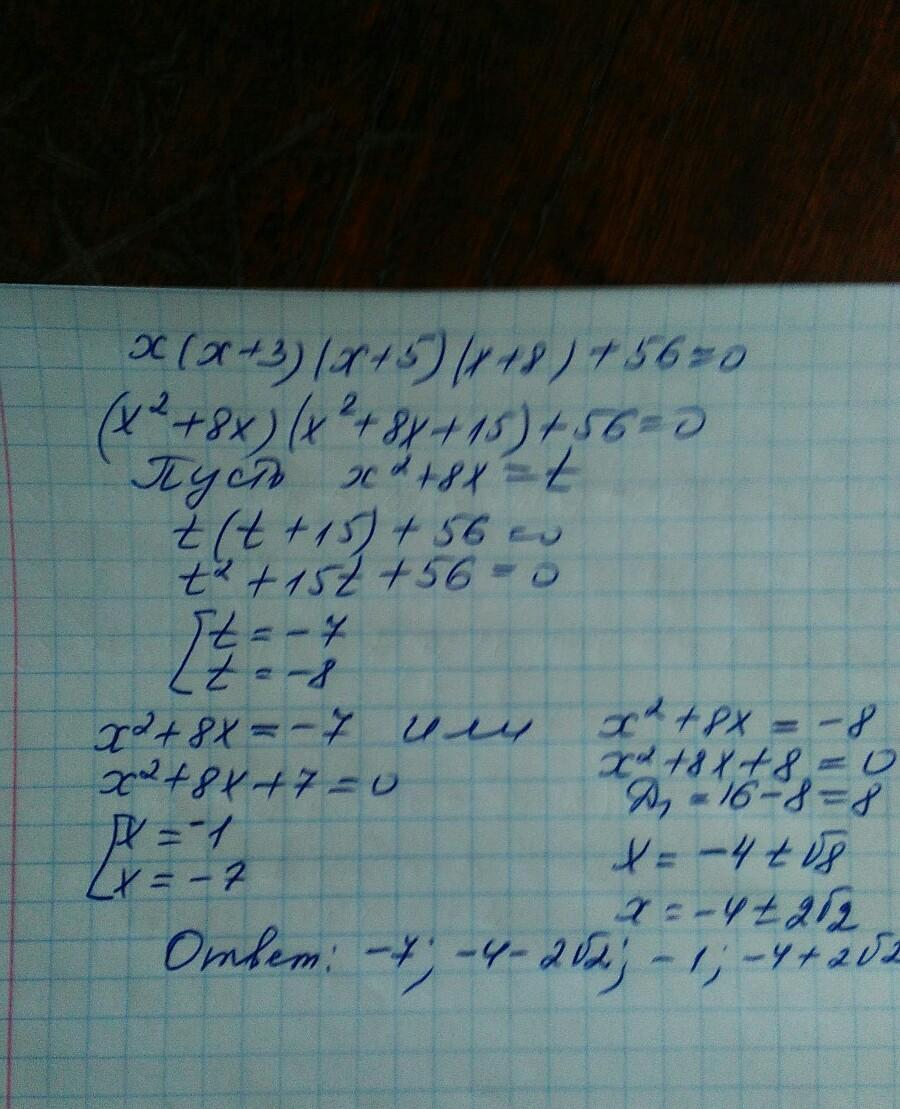 x(x+3)(x+5)(x+8)+56=0
(x²+8x)(x²+8x+15)+56=0
Пусть x²+8x=t
t(t+15)+56=0
t²+15t+56=0
[t=-7
t=-8
x²+8x=-7 или x²+8x=-8
x²+8x+7=0 x²+8x+8=0
D₁=16-8=8
[x=-1 x=-4±√8
x=-7 x=-4±2√2
Ответ: -7; -4-2√2; -1; -4+2√2